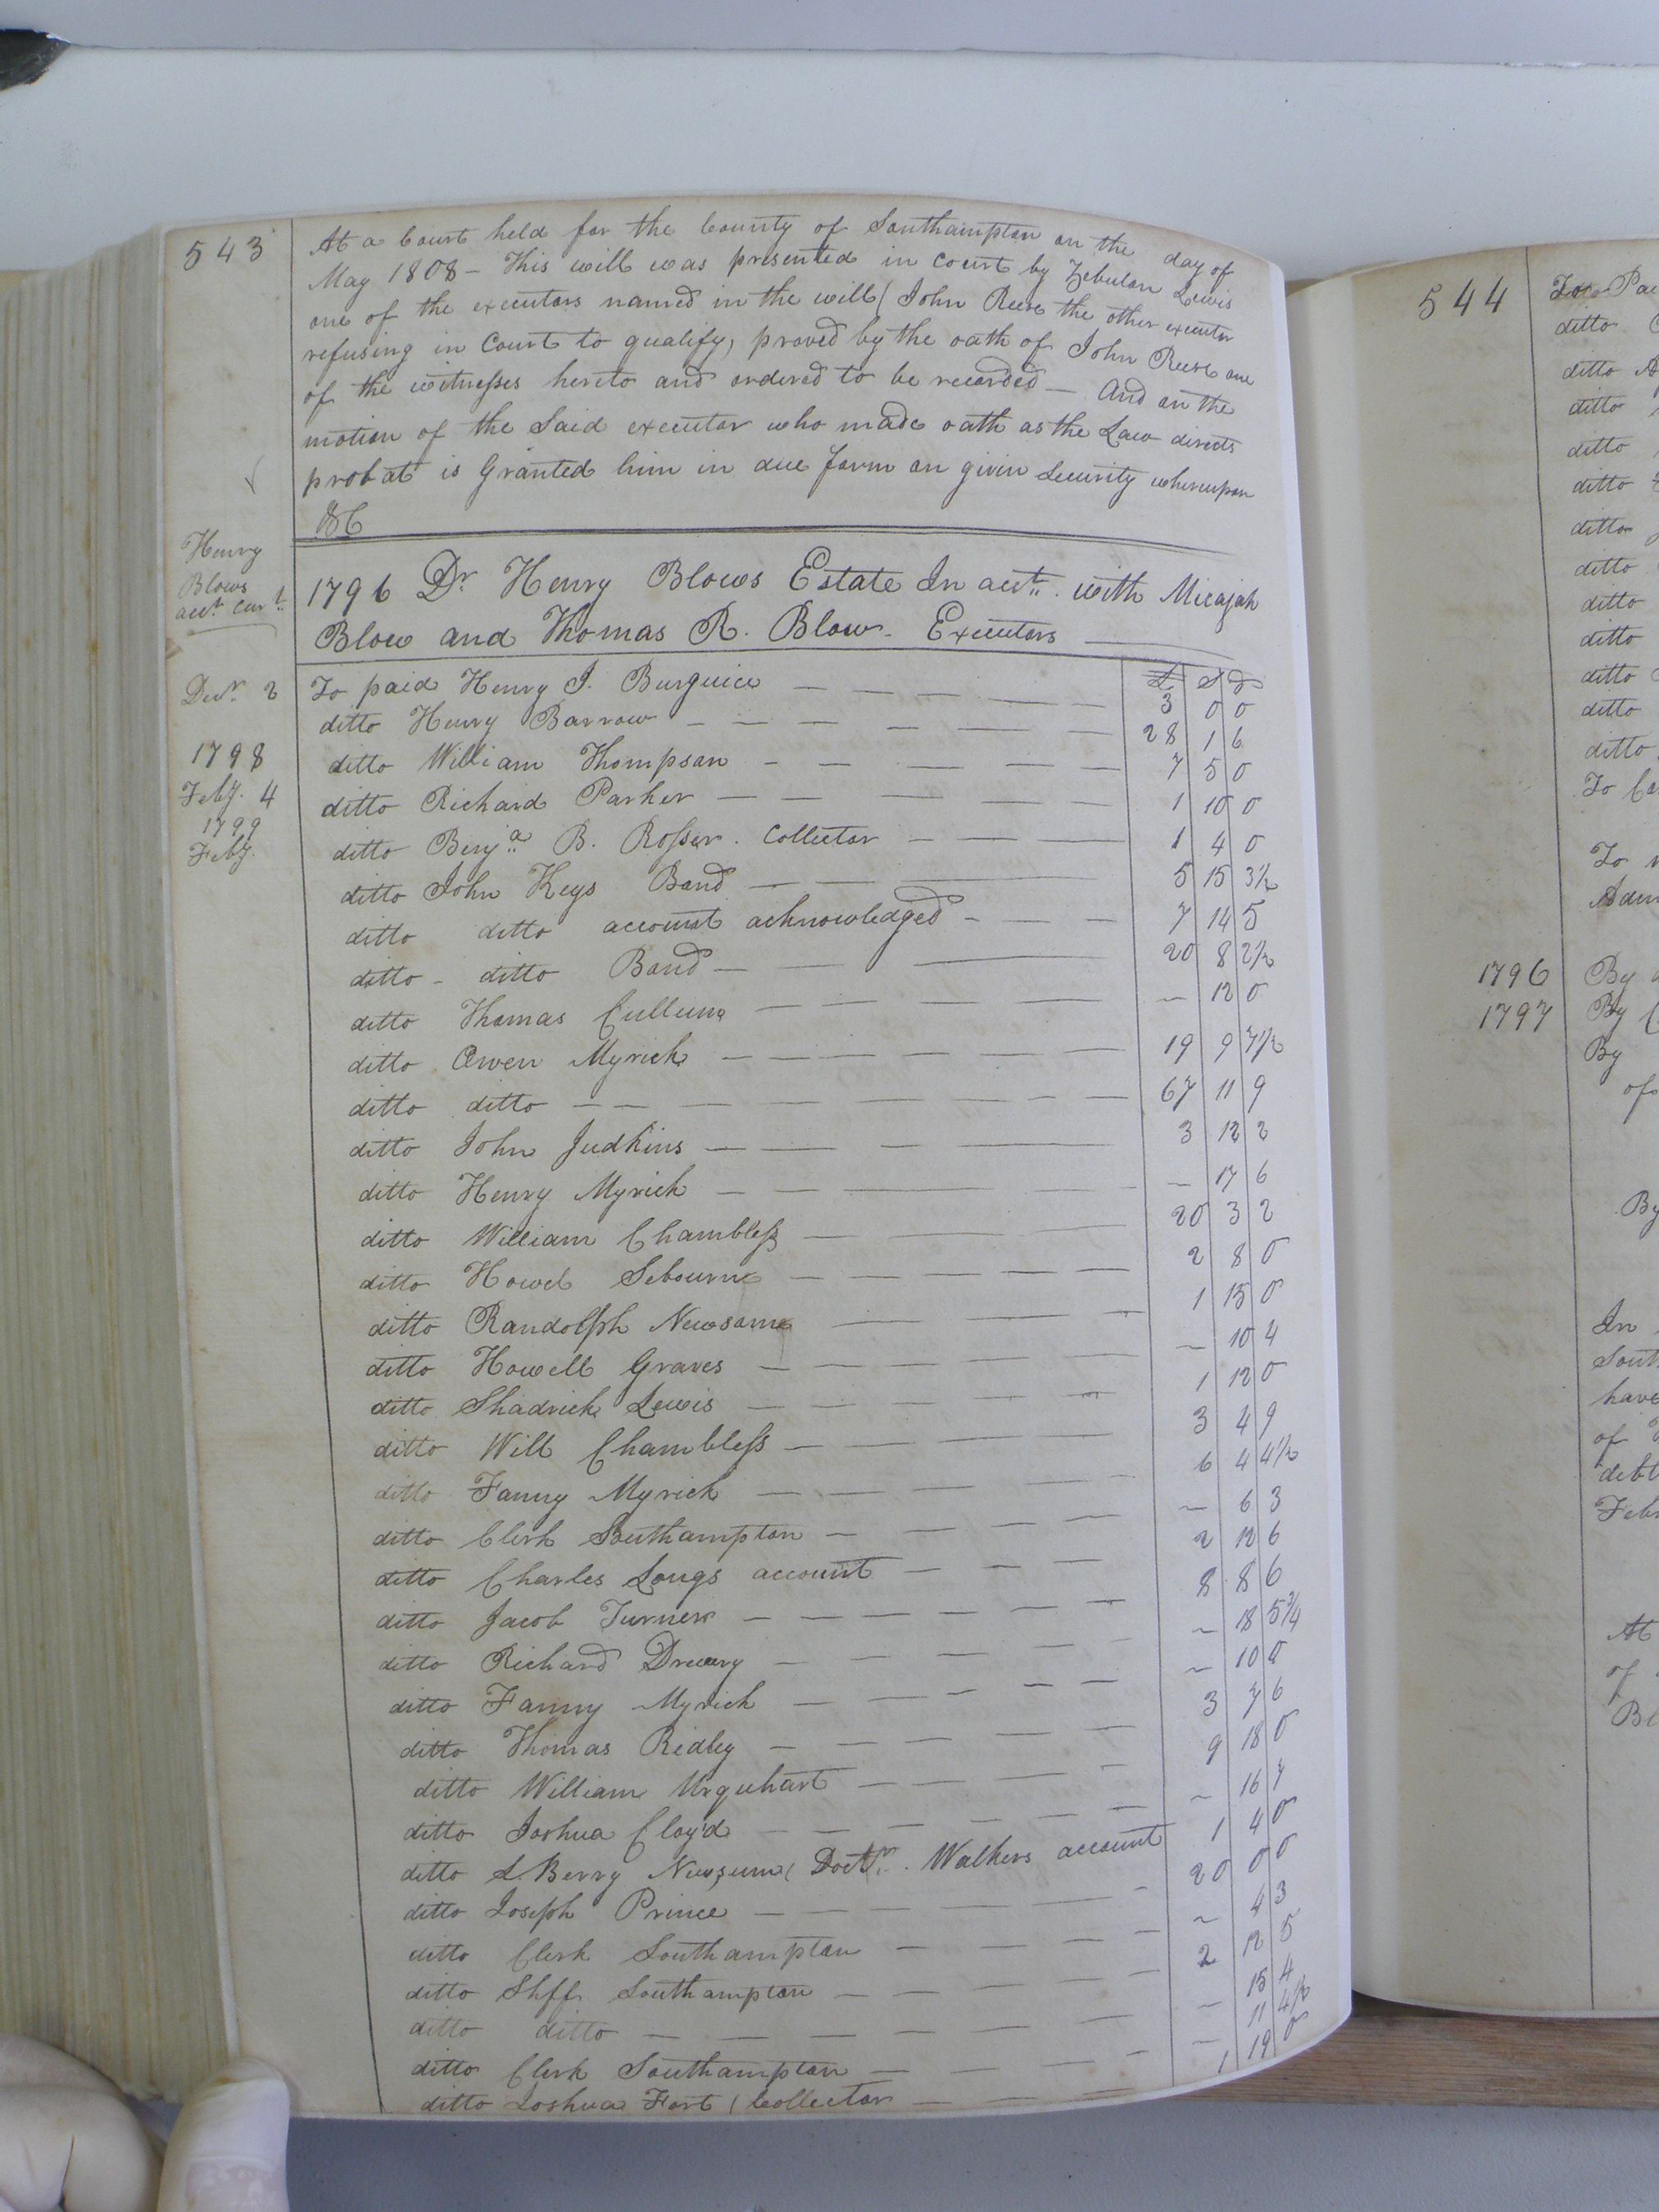 543
At a Court held for the County of Southampton on the day of
May 1808 - This will was presented in Court by Zebulon Lewis
one of the executors named in the will ( John Reese the other executor
refusing in Court to qualify, proved by the oath of John Reese one
of the witnesses hereto and ordered to be recorded - And on the
motion of the Said executor who made oath as the Law directs
probat is Granted him in due form on givin Security whereupon
&C
Henry
Blows
acct. Curt.
1796 Dr. Henry Blows Estate In acct. with Micajah
Blow and Thomas R. Blow. Executors
£ S D
Decr. 2 To paid Henry J. Burguice 3 0 0
ditto Henry Barrow 28 1 6
1798 ditto William Thompson 7 5 0
Feby. 4 ditto Richard Parker 1 10 0
1799
Feby. ditto Benja. B. Rosser. Collector 1 4 0
ditto John Keys Bond 5 15 3½
ditto ditto account acknowledged 7 14 5
ditto - ditto Bond 20 8 2½
ditto Thomas Cullum - 12 0
ditto Owen Myrick 19 9 7½
ditto ditto 67 11 9
ditto John Judkins 3 12 2
ditto Henry Myrick - 17 6
ditto William Chambless 20 3 2
ditto Howel Sebourne 2 8 0
ditto Randolph Newsome 1 15 0
ditto Howell Graves - 10 4
ditto Shadrick Lewis 1 12 0
ditto Will Chambless 3 4 9
ditto Fanny Myrick 6 4 4½
ditto Clerk Southampton - 6 3
ditto Charles Longs account 2 12 6
ditto Jacob Turner 8 8 6
ditto Richard Drewry - 18 5¾
ditto Fanny Myrick - 10 0
ditto Thomas Ridley 3 7 6
ditto William Urquhart 9 18 0
ditto Joshua Cloyd - 16 7
ditto L. Berry Newsum ( Doctr. Walkers account 1 4 0
ditto Joseph Prince 20 0 0
ditto Clerk Southampton - 4 3
ditto Shff Southampton 2 12 5
ditto ditto - 15 4
ditto Clerk Southampton - 11 4½
ditto Joshua Fort ( Collector 1 19 0
544
To Pa
ditto
ditto A
ditto
ditto
ditto
ditto
ditto
ditto
ditto
ditto
ditto
ditto
To
To
1796 By
1797 By
By
of
By
In
South
have
of
debt
Febr
At
of
Bl